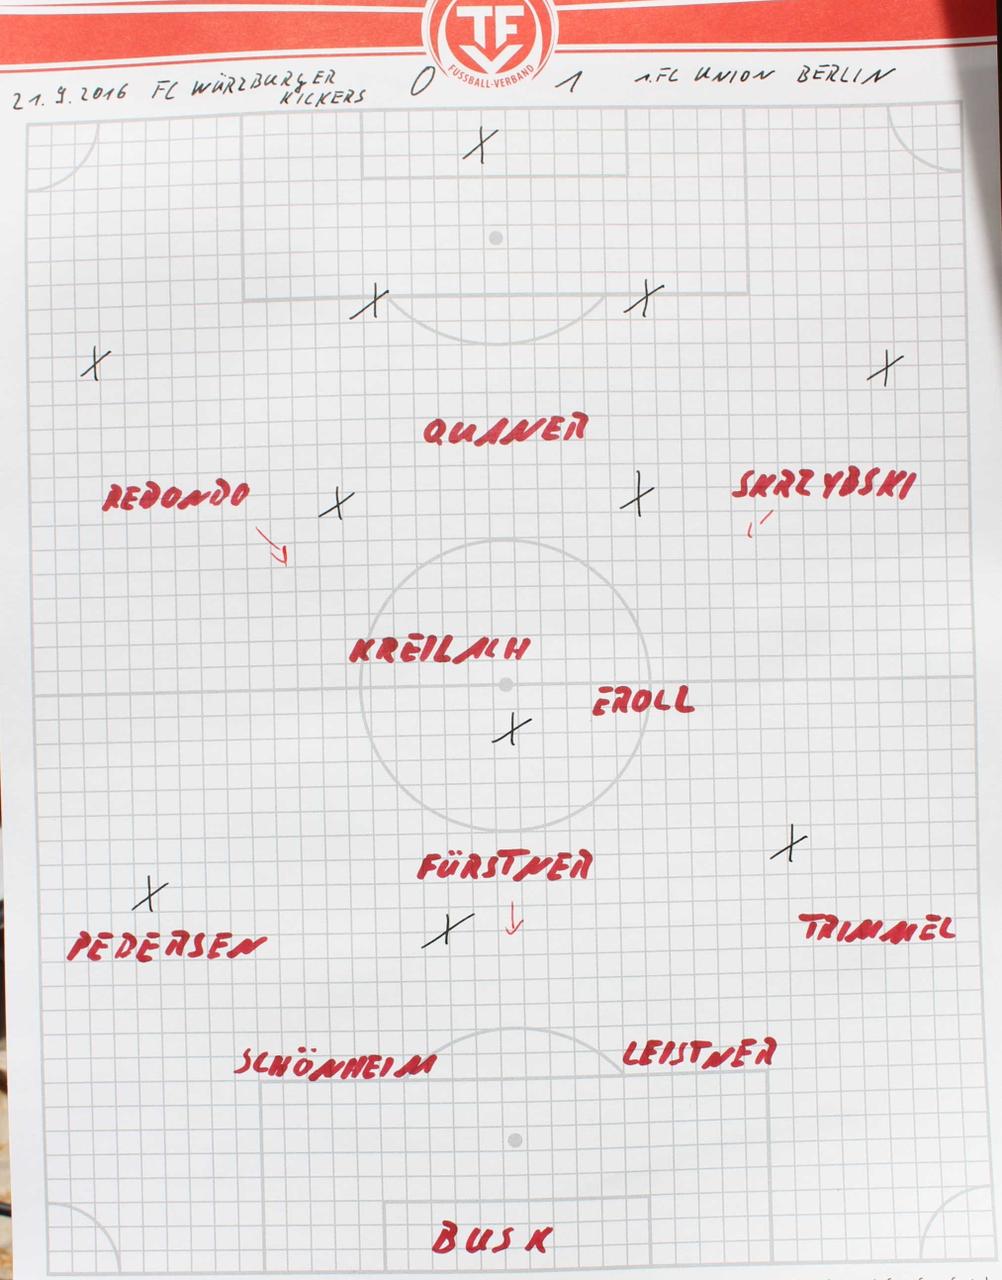 TF
FUSSBALL-VERBAND
21.9.2016 FC WÜRZBURGER KICKERS 0 1 1.FC UNION BERLIN
X
X X
X X
QUANER
REDONDO X X SKRZYBSKI
KREILACH
EROLL
X
X
FÜRSTNER
X
X
PEDERSEN TRIMMEL
SCHÖNHEIM LEISTNER
BUSK